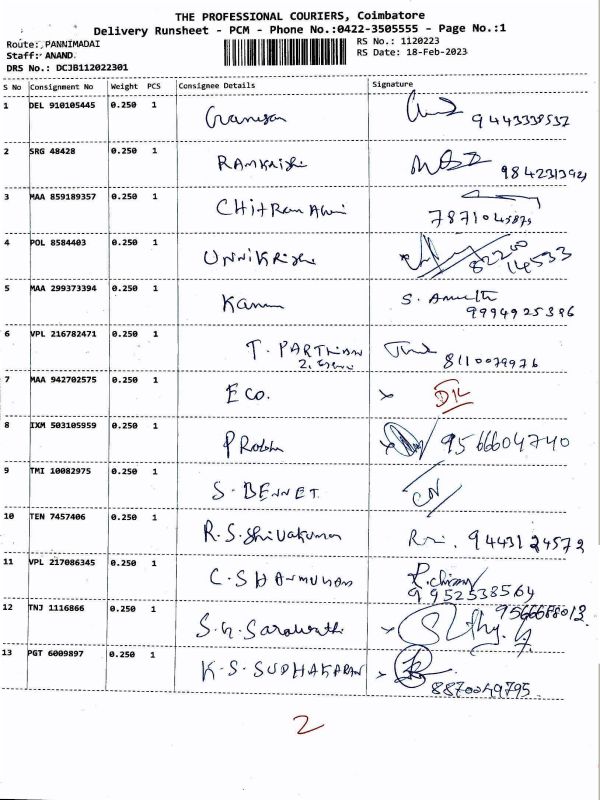 THE PROFESSIONAL COURIERS, Coimbatore
Delivery Runsheet - PCM - Phone No.:0422-3505555 - Page No.:1
Route: PANNIMADAI
RS No.: 1120223
Staff: ANAND.
RS Date: 18-Feb-2023
DRS No.: DCJB112022301
S No Consignment No Weight PCS Consignee Details Signature
1 DEL 910105445 0.250 1 Ganesan
2 SRG 48428 0.250 1
3 MAA 859189357 0.250 1 7871045875
4 POL 8584403 0.250 1 UNNiKRish 82200
14533
5 MAA 299373394 0.250 1 Kannan S.
9994925386
6 VPL 216782471 0.250 1 T. PARTHIBAN
8110079976
7 MAA 942702575 0.250 1 ECO. DK
8 IXM 503105959 0.250 1 PRabhu 9566604740
9 TMI 10082975 0.250 1 S. BENNET CN
10 TEN 7457406 0.250 1 R.S.Shivakumar 9443124572
11 VPL 217086345 0.250 1 C.SHANMUGAM
9952538564
12 TNJ 1116866 0.250 1 9566688012
13 PGT 6009897 0.250 1 K.S.SUDHAKARAN
8870049795
2